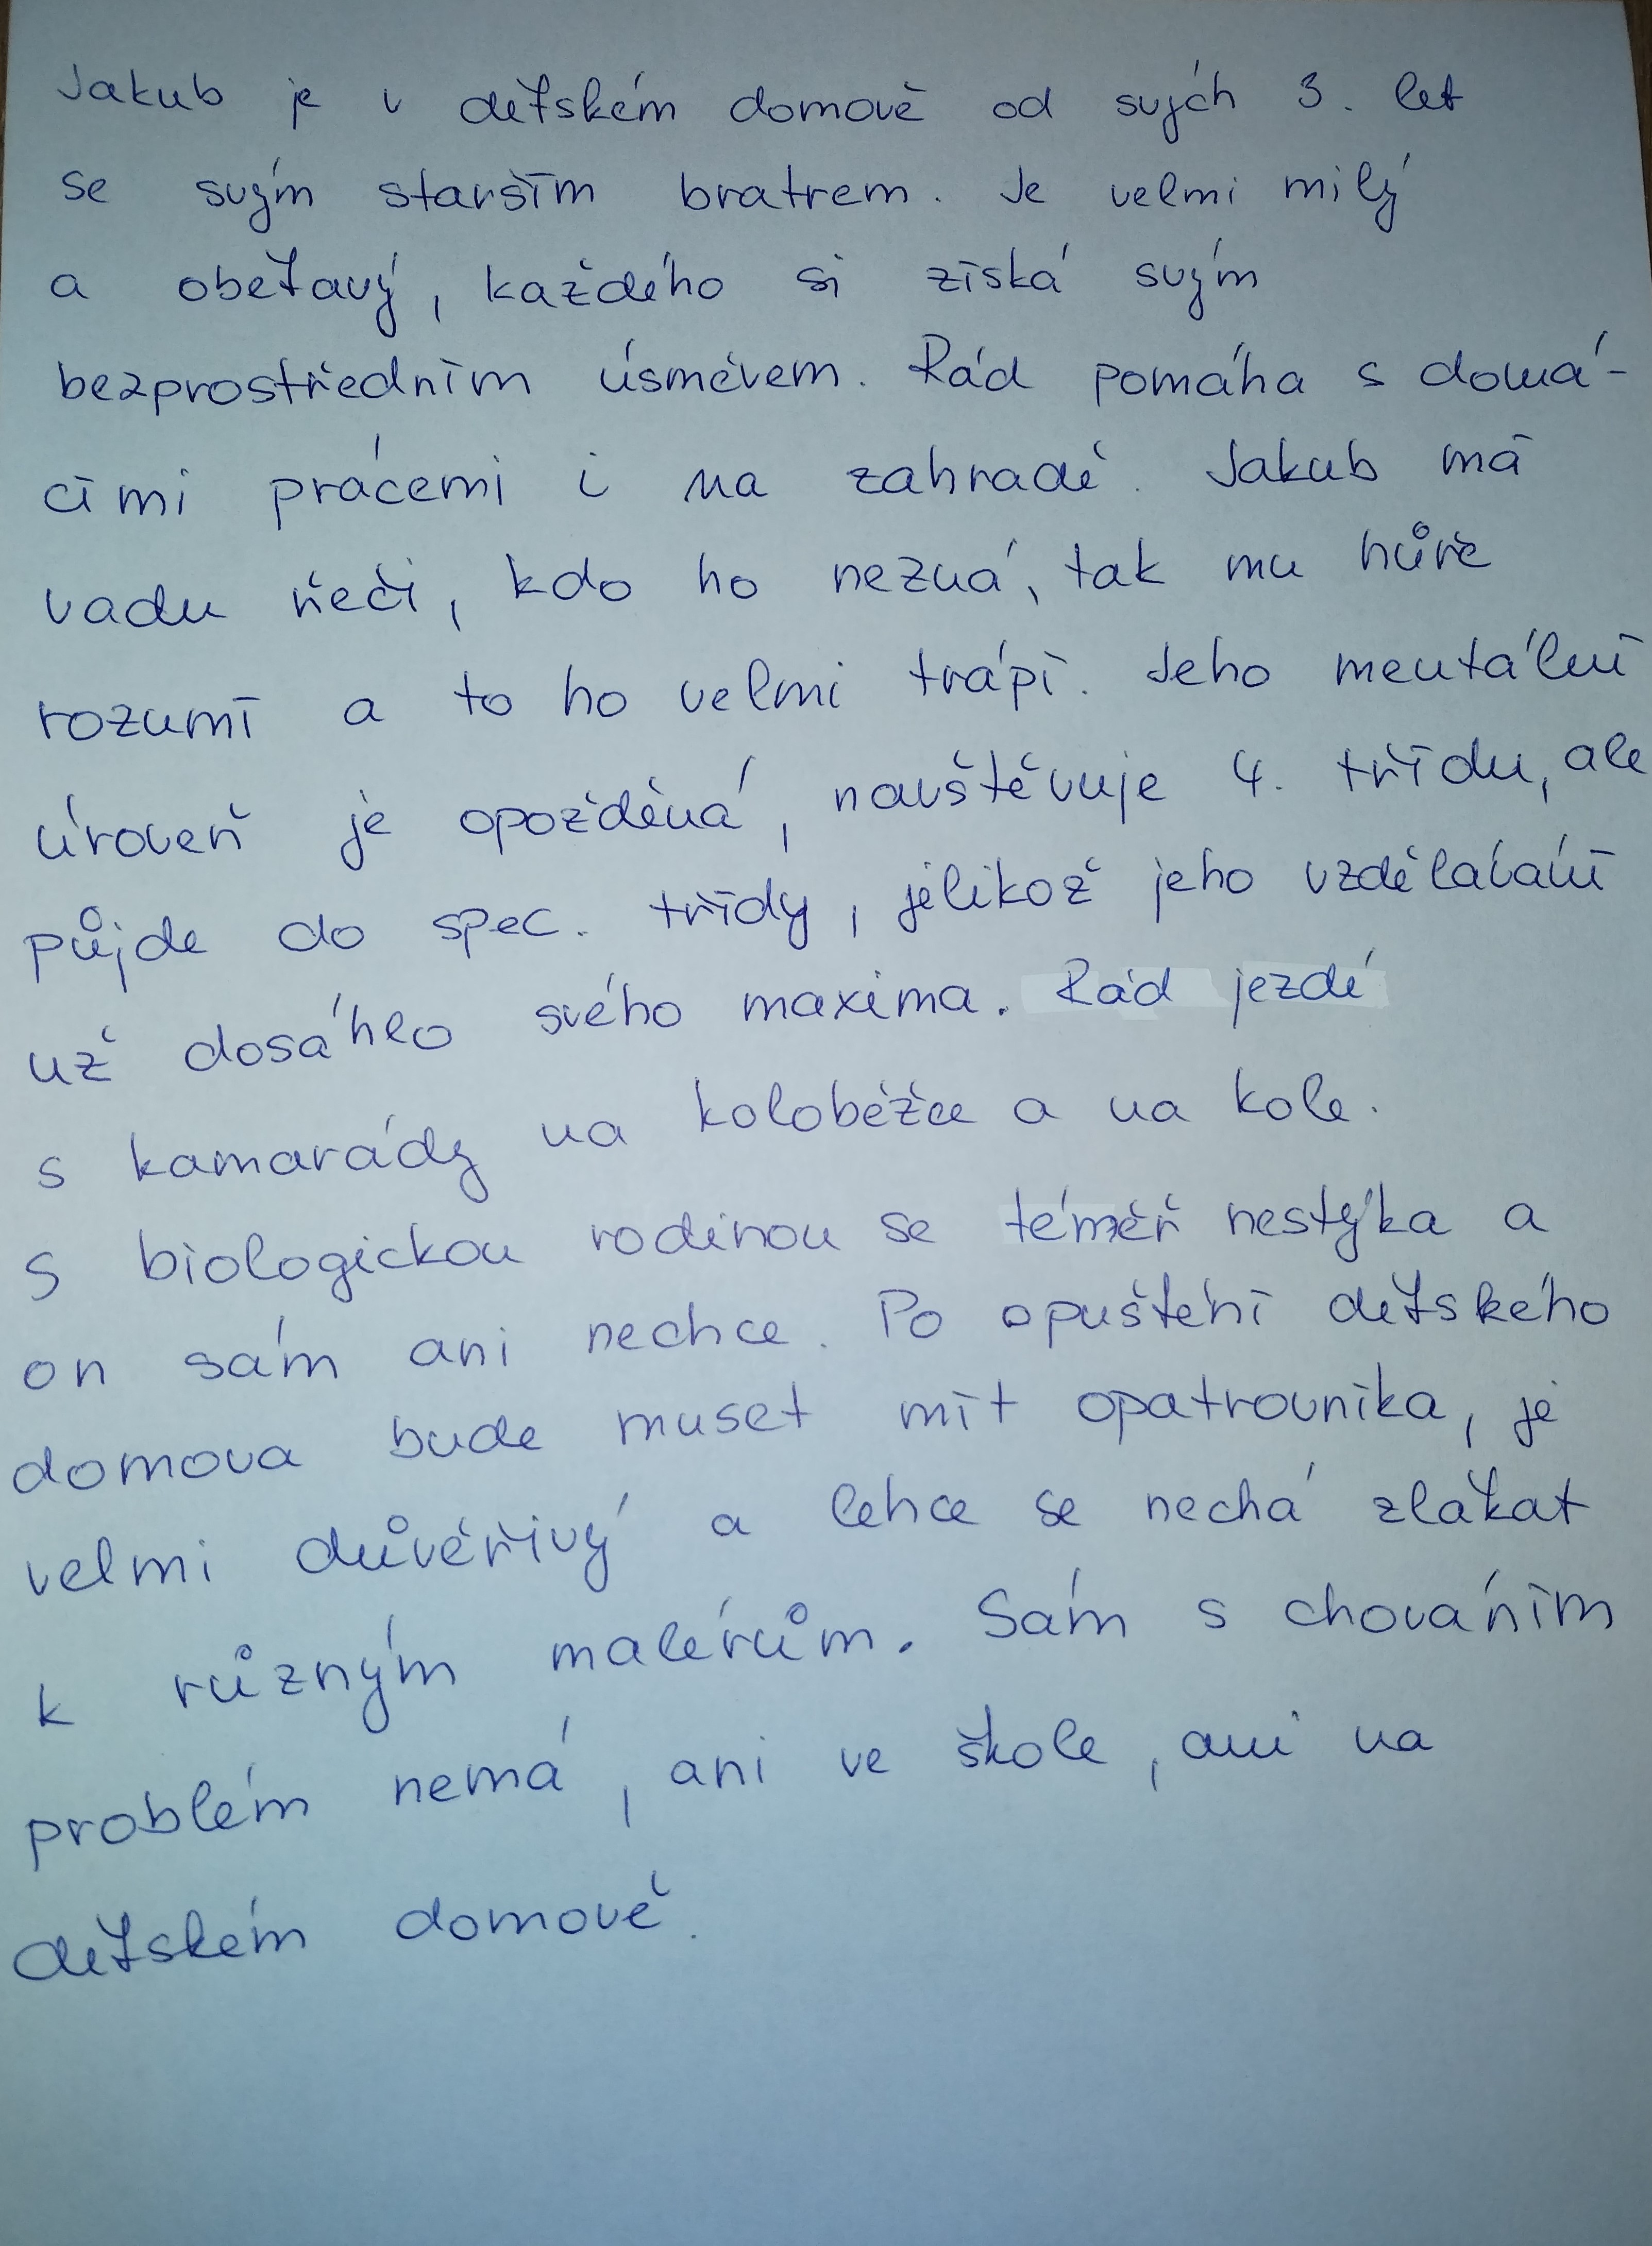 Jakub je v dětském domově od svých 3. let
se svým starším bratrem. Je velmi milý
a obětavý, každého si získá svým
bezprostředním úsměvem. Rád pomáha s domá-
cími prácemi i na zahradě. Jakub má
vadu řeči, kdo ho nezná, tak mu hůře
rozumí a to ho velmi trápí. Jeho mentální
úroveň je opožděná, navštěvuje 4. třídu, ale
půjde do spec. třídy, jelikož jeho vzdělávání
už dosáhlo svého maxima. Rád jezdí
s kamarády na koloběžce a na kole.
S biologickou rodinou se téměř nestýka a
on sám ani nechce. Po opuštění dětského
domova bude muset mít opatrovníka, je
velmi důvěřivý a lehce se nechá zlákat
k různým malérům. Sám s chováním
problém nemá, ani ve škole, ani na
dětském domově.